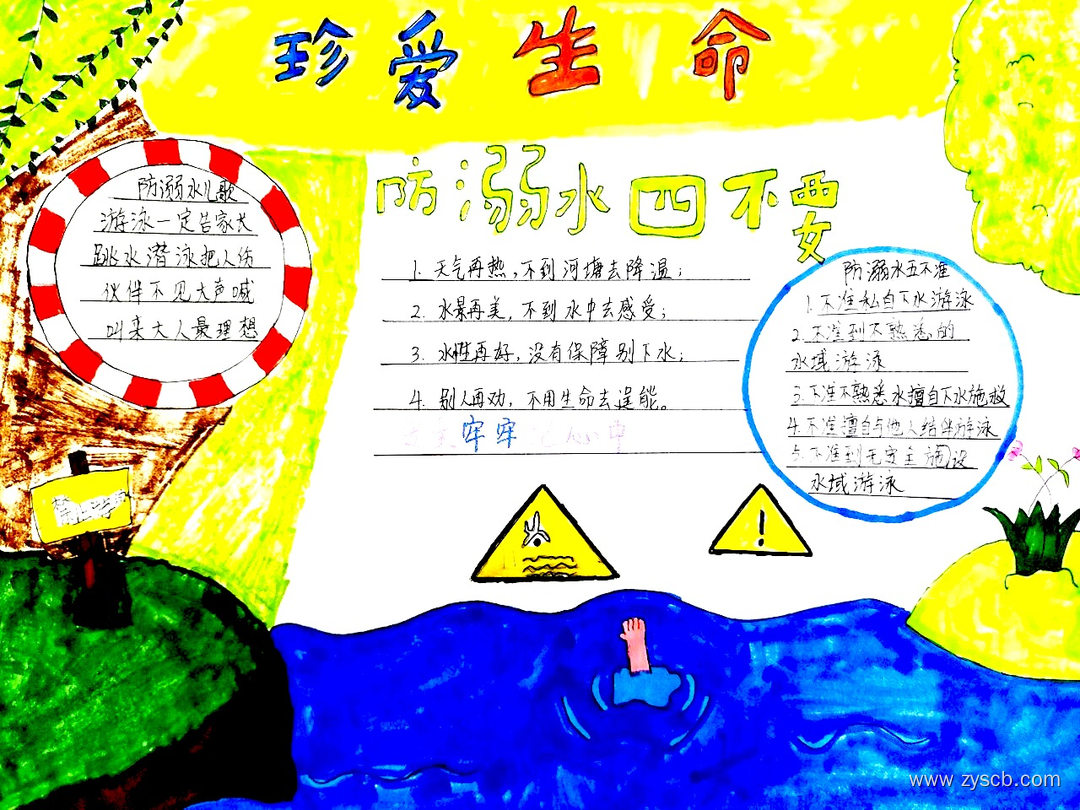 珍爱生命
防溺水儿歌
游泳一定告家长
跳水潜泳把人伤
伙伴不见大声喊
叫来大人最理想
防溺水四不要
1. 天气再热,不到河塘去降温;
2. 水景再美,不到水中去感受;
3. 水性再好,没有保障别下水;
4. 别人再劝,不用生命去逞能。
牢牢 心中
防溺水五不准
1.不准私自下水游泳
2.不准到不熟悉的
水域游泳
3.不准不熟悉水擅自下水施救
4.不准擅自与他人结伴游泳
5.不准到无安全设
水域游泳
!
www.zyscb.com